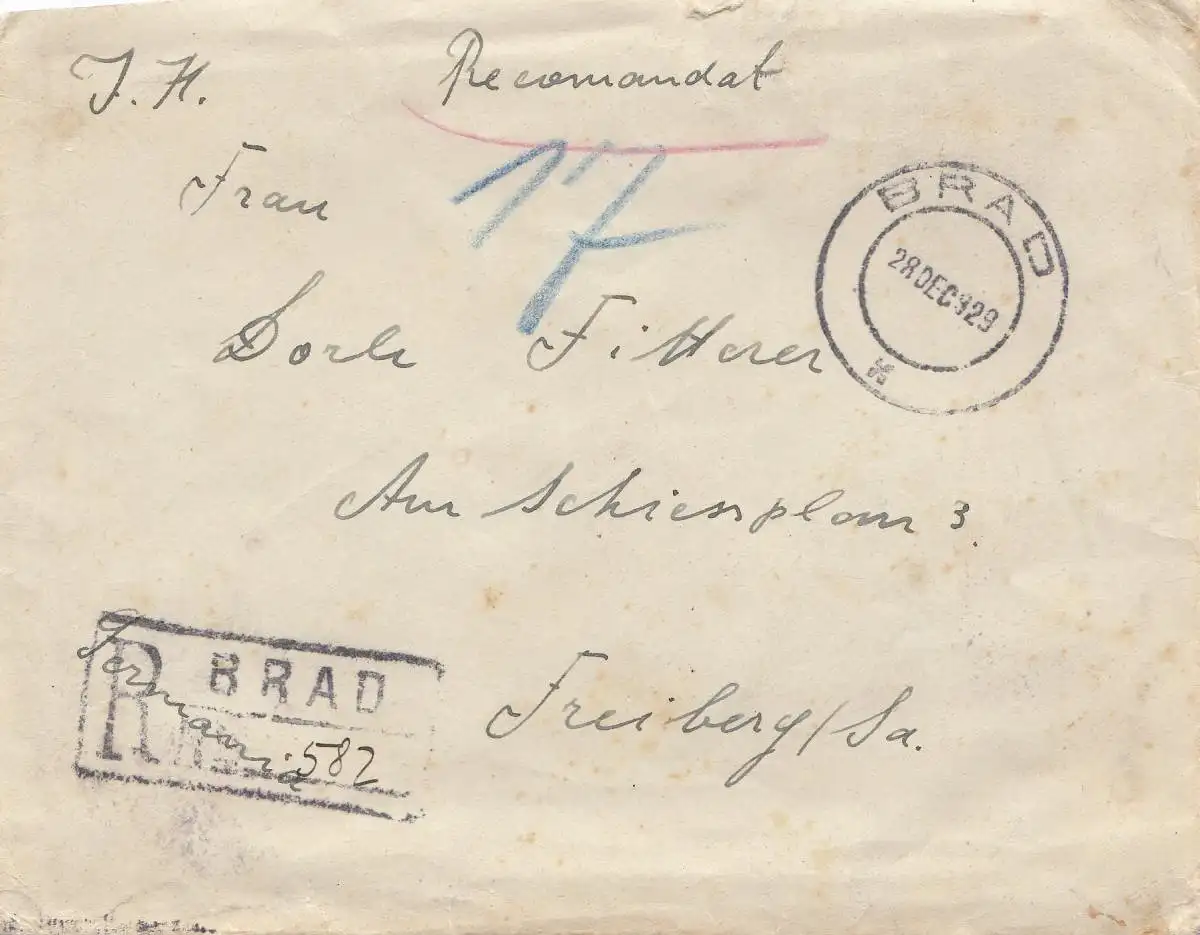 I. H. Recomandat
17
Frau
BRAD
28 DEC 929
Dorle Fitterer
Am Schiessplan 3.
Germania
R BRAD
No 582
Freiberg/Sa.